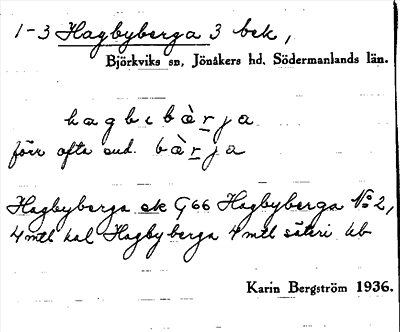 1-3 Hagbyberga 3 bek,
Björkviks sn, Jönåkers hd, Södermanlands län.
hagbɩbà̀rja
förr ofta end. bà̀rja
Hagbyberga ek G66 Hagbyberga No 2,
4 mtl kal Hagbyberga 4 mtl säteri
Karin Bergström 1936.